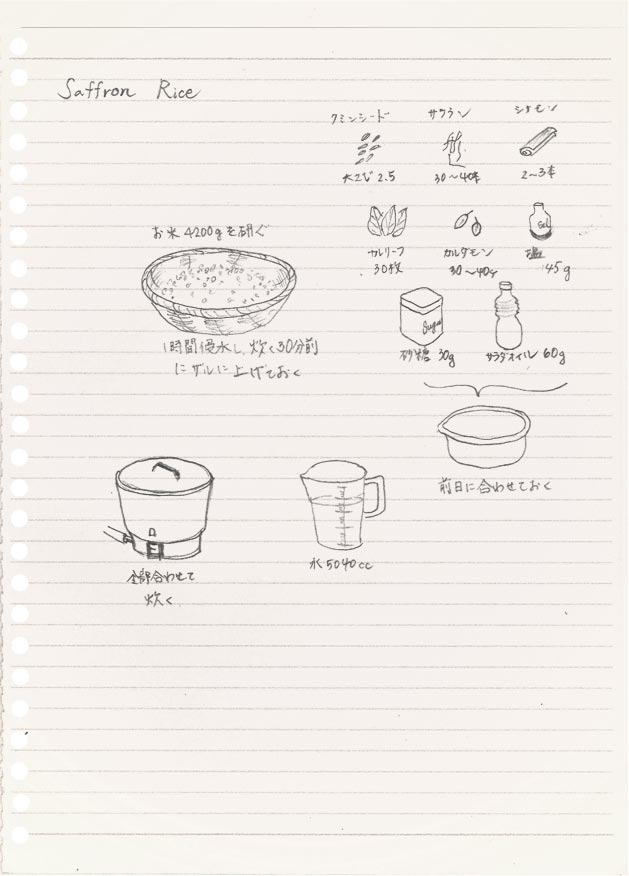 Saffron Rice
クミンシード
大さじ 2.5
サフラン
30〜40本
シナモン
2〜3本
カレリーフ
30枚
カルダモン
30〜40ヶ
Sel
塩
45g
Sugar
砂糖 30g
サラダオイル 60g
前日に合わせておく
お米 4200gを研ぐ
1時間浸水し、炊く30分前
にザルに上げておく
全部合わせて
炊く
水 5040cc